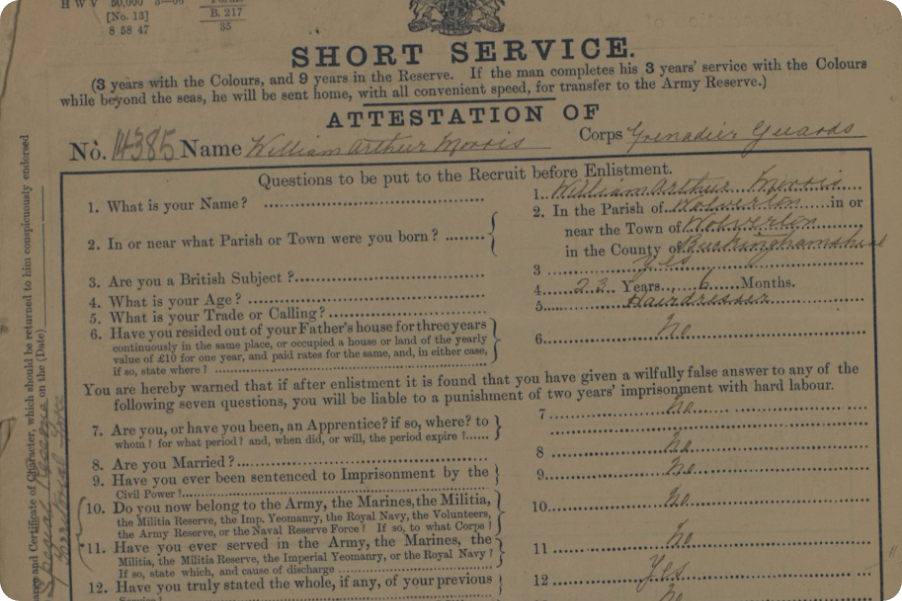 H W V 50,000 3—06
Forms
[No. 13] B. 217
8 58 47 35
SHORT SERVICE.
(3 years with the Colours, and 9 years in the Reserve. If the man completes his 3 years' service with the Colours
while beyond the seas, he will be sent home, with all convenient speed, for transfer to the Army Reserve.)
ATTESTATION OF
No. 14385 Name William Arthur Morris Corps Grenadier Guards
Questions to be put to the Recruit before Enlistment.
1. What is your Name? 1. William Arthur Morris
2. In or near what Parish or Town were you born? 2. In the Parish of Wolverton in or
near the Town of Wolverton
in the County of Buckinghamshire
3. Are you a British Subject? 3 Yes
4. What is your Age? 4 23 Years, 6 Months.
5. What is your Trade or Calling? 5. Hairdresser
6. Have you resided out of your Father's house for three years
continuously in the same place, or occupied a house or land of the yearly
value of £10 for one year, and paid rates for the same, and, in either case,
if so, state where? 6. No
You are hereby warned that if after enlistment it is found that you have given a wilfully false answer to any of the
following seven questions, you will be liable to a punishment of two years' imprisonment with hard labour.
7. Are you, or have you been, an Apprentice? if so, where? to
whom? for what period? and, when did, or will, the period expire? 7 No
8. Are you Married? 8 No
9. Have you ever been sentenced to Imprisonment by the
Civil Power? 9. No
10. Do you now belong to the Army, the Marines, the Militia,
the Militia Reserve, the Imp. Yeomanry, the Royal Navy, the Volunteers,
the Army Reserve, or the Naval Reserve Force? If so, to what Corps? 10. No
*11. Have you ever served in the Army, the Marines, the
Militia, the Militia Reserve, the Imperial Yeomanry, or the Royal Navy?
If so, state which, and cause of discharge 11 No
12. Have you truly stated the whole, if any, of your previous
Service? 12 Yes
No
and Certificate of Character, which should be returned to him conspicuously endorsed
on the (Date)